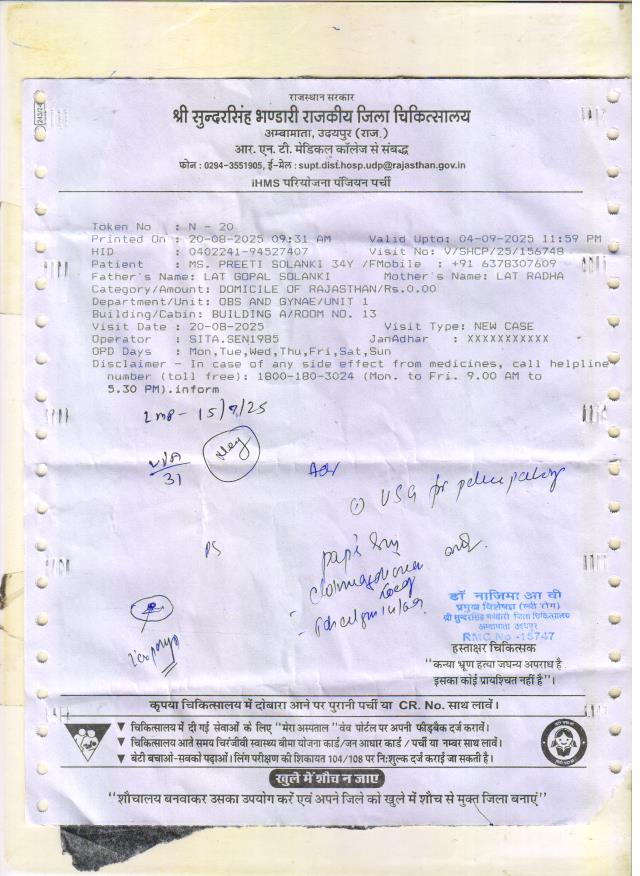 243/24
राजस्थान सरकार
श्री सुन्दरसिंह भण्डारी राजकीय जिला चिकित्सालय
अम्बामाता, उदयपुर (राज.)
आर. एन. टी. मेडिकल कॉलेज से संबद्ध
फोन : 0294-3551905, ई-मेल : supt.dist.hosp.udp@rajasthan.gov.in
iHMS परियोजना पंजियन पर्ची
Token No : N - 20
Printed On : 20-08-2025 09:31 AM Valid Upto: 04-09-2025 11:59 PM
HID : 0402241-94527407 Visit No: V/SHCP/25/156748
Patient : MS. PREETI SOLANKI 34Y /FMobile : +91 6378307609
Father's Name: LAT GOPAL SOLANKI Mother's Name: LAT RADHA
Category/Amount: DOMICILE OF RAJASTHAN/Rs.0.00
Department/Unit: OBS AND GYNAE/UNIT 1
Building/Cabin: BUILDING A/ROOM NO. 13
Visit Date : 20-08-2025 Visit Type: NEW CASE
Operator : SITA.SEN1985 JanAdhar : XXXXXXXXXXX
OPD Days : Mon,Tue,Wed,Thu,Fri,Sat,Sun
Disclaimer - In case of any side effect from medicines, call helpline
number (toll free): 1800-180-3024 (Mon. to Fri. 9.00 AM to
5.30 PM).inform
15/7/25
31
Adv
USG for
PS
डॉ नाजिमा आ वी
प्रमुख विशेषज्ञ (स्त्री रोग)
श्री सुन्दरसिंह भण्डारी जिला चिकित्सालय
अम्बामाता उदयपुर
RMC No -15747
हस्ताक्षर चिकित्सक
"कन्या भ्रूण हत्या जघन्य अपराध है
इसका कोई प्रायश्चित नहीं है"।
कृपया चिकित्सालय में दोबारा आने पर पुरानी पर्ची या CR. No. साथ लावें।
▼ चिकित्सालय में दी गई सेवाओं के लिए "मेरा अस्पताल" वेब पोर्टल पर अपनी फीडबैक दर्ज करावें।
▼ चिकित्सालय आते समय चिरंजीवी स्वास्थ्य बीमा योजना कार्ड/जन आधार कार्ड / पर्ची या नम्बर साथ लावें।
▼ बेटी बचाओ-सबको पढ़ाओ। लिंग परीक्षण की शिकायत 104/108 पर नि:शुल्क दर्ज कराई जा सकती है।
खुले में शौच न जाए
"शौचालय बनवाकर उसका उपयोग करें एवं अपने जिले को खुले में शौच से मुक्त जिला बनाएं"